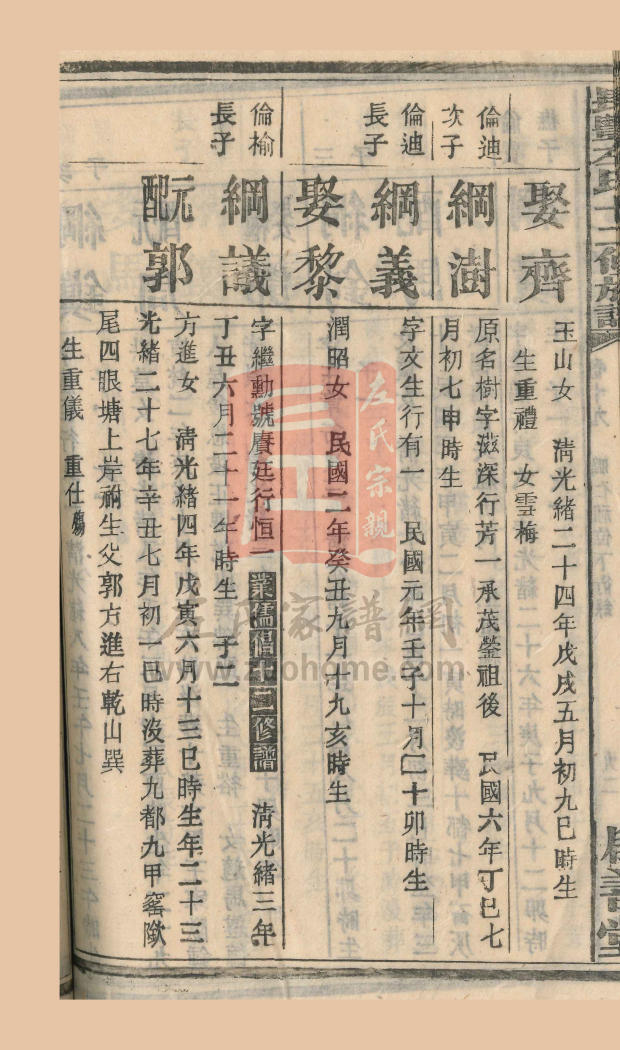 娶齊
玉山女 清光緒二十四年戊戌五月初九巳時生
生重禮 女雲梅
倫迪
次子
綱澍
原名樹字滋深行芳一承茂鎣祖後 民國六年丁巳七
月初七申時生
倫迪
長子
綱義
字文生行有一 民國元年壬子十月二十卯時生
娶黎
潤昭女 民國二年癸丑九月十九亥時生
倫榆
長子
綱議
字繼勳號賡廷行恒一 業儒倡十二修譜 清光緒三年
丁丑六月二十一午時生 子二
配元郭
方進女 清光緒四年戊寅六月十三巳時生年二十三
光緒二十七年辛丑七月初一巳時沒葬九都九甲窰𡑞
尾四眼塘上岸祔生父郭方進右乾山巽
生重儀 重仕殤
左氏宗親
左氏家譜網
www.zuohome.com